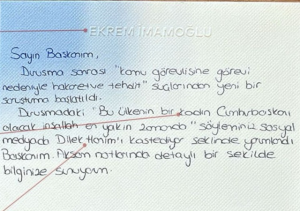 EKREM İMAMOĞLU
Sayın Başkanım,
Duruşma sonrası "kamu görevlisine görevi
nedeniyle hakaret ve tehdit" suçlarından yeni bir
soruşturma başlatıldı.
Duruşmadaki "Bu ülkenin bir kadın Cumhurbaşkanı
olacak inşallah en yakın zamanda" söyleminiz sosyal
medyada Dilek Hanım'ı kastediyor şeklinde yorumlandı
Başkanım. Akşam notlarında detaylı bir şekilde
bilginize sunuyorum.